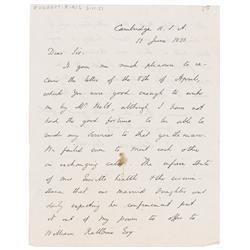 Cambridge U. S. A.
12 June 1851.
Dear Sir.
It gave me much pleasure to re-
ceive the letter of the 8th of April,
which you were good enough to write
me by Mr Holt, although I have not
had the good fortune to be able to
render any services to that gentleman.
We failed even to meet each other
in exchanging calls. The infirm state
of Mrs health & the circum-
stance that our married daughter was
daily expecting her confinement put
it out of my power to offer to
William Rathbone Esq